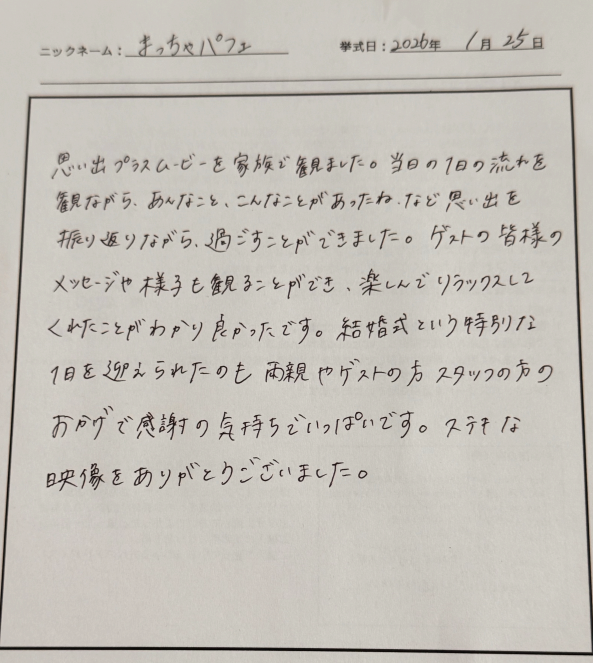 ニックネーム： まっちゃパフェ 挙式日：2026年 1月 25日
思い出プラスムービーを家族で観ました。当日の1日の流れを
観ながら、あんなこと、こんなことがあったね、など思い出を
振り返りながら、過ごすことができました。ゲストの皆様の
メッセージや様子も観ることができ、楽しんでリラックスして
くれたことがわかり良かったです。結婚式という特別な
1日を迎えられたのも両親やゲストの方スタッフの方の
おかげで感謝の気持ちでいっぱいです。ステキな
映像をありがとうございました。